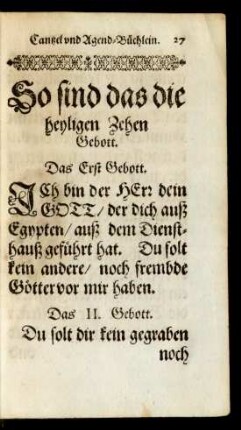 Cantzel vnd Agend-Büchlein. 27
So sind das die
heyligen Zehen
Gebott.
Das Erst Gebott.
ICh bin der HErr dein
GOTT/ der dich auß
Egypten/ auß dem Dienst-
hauß geführt hat. Du solt
kein andere/ noch frembde
Götter vor mir haben.
Das II. Gebott.
Du solt dir kein gegraben
noch